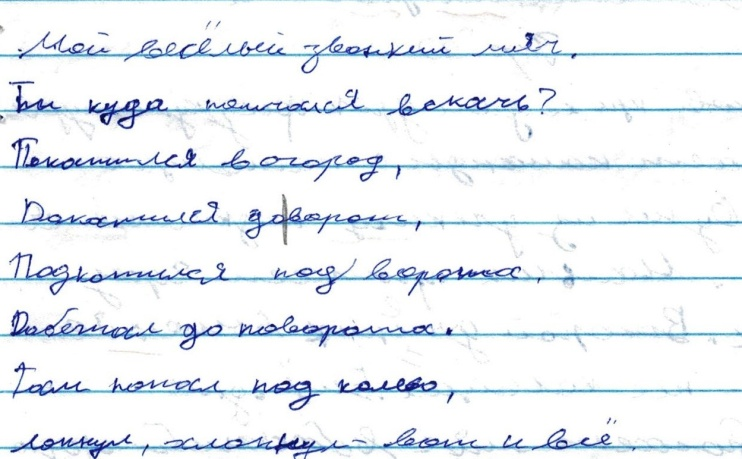 Мой весёлый звонкий мяч.
Ты куда помчался вскачь?
Покатился в огород,
Докатился до ворот,
Подкатился под ворота.
Добежал до поворота.
Там попал под колесо,
лопнул, хлопнул - вот и всё.